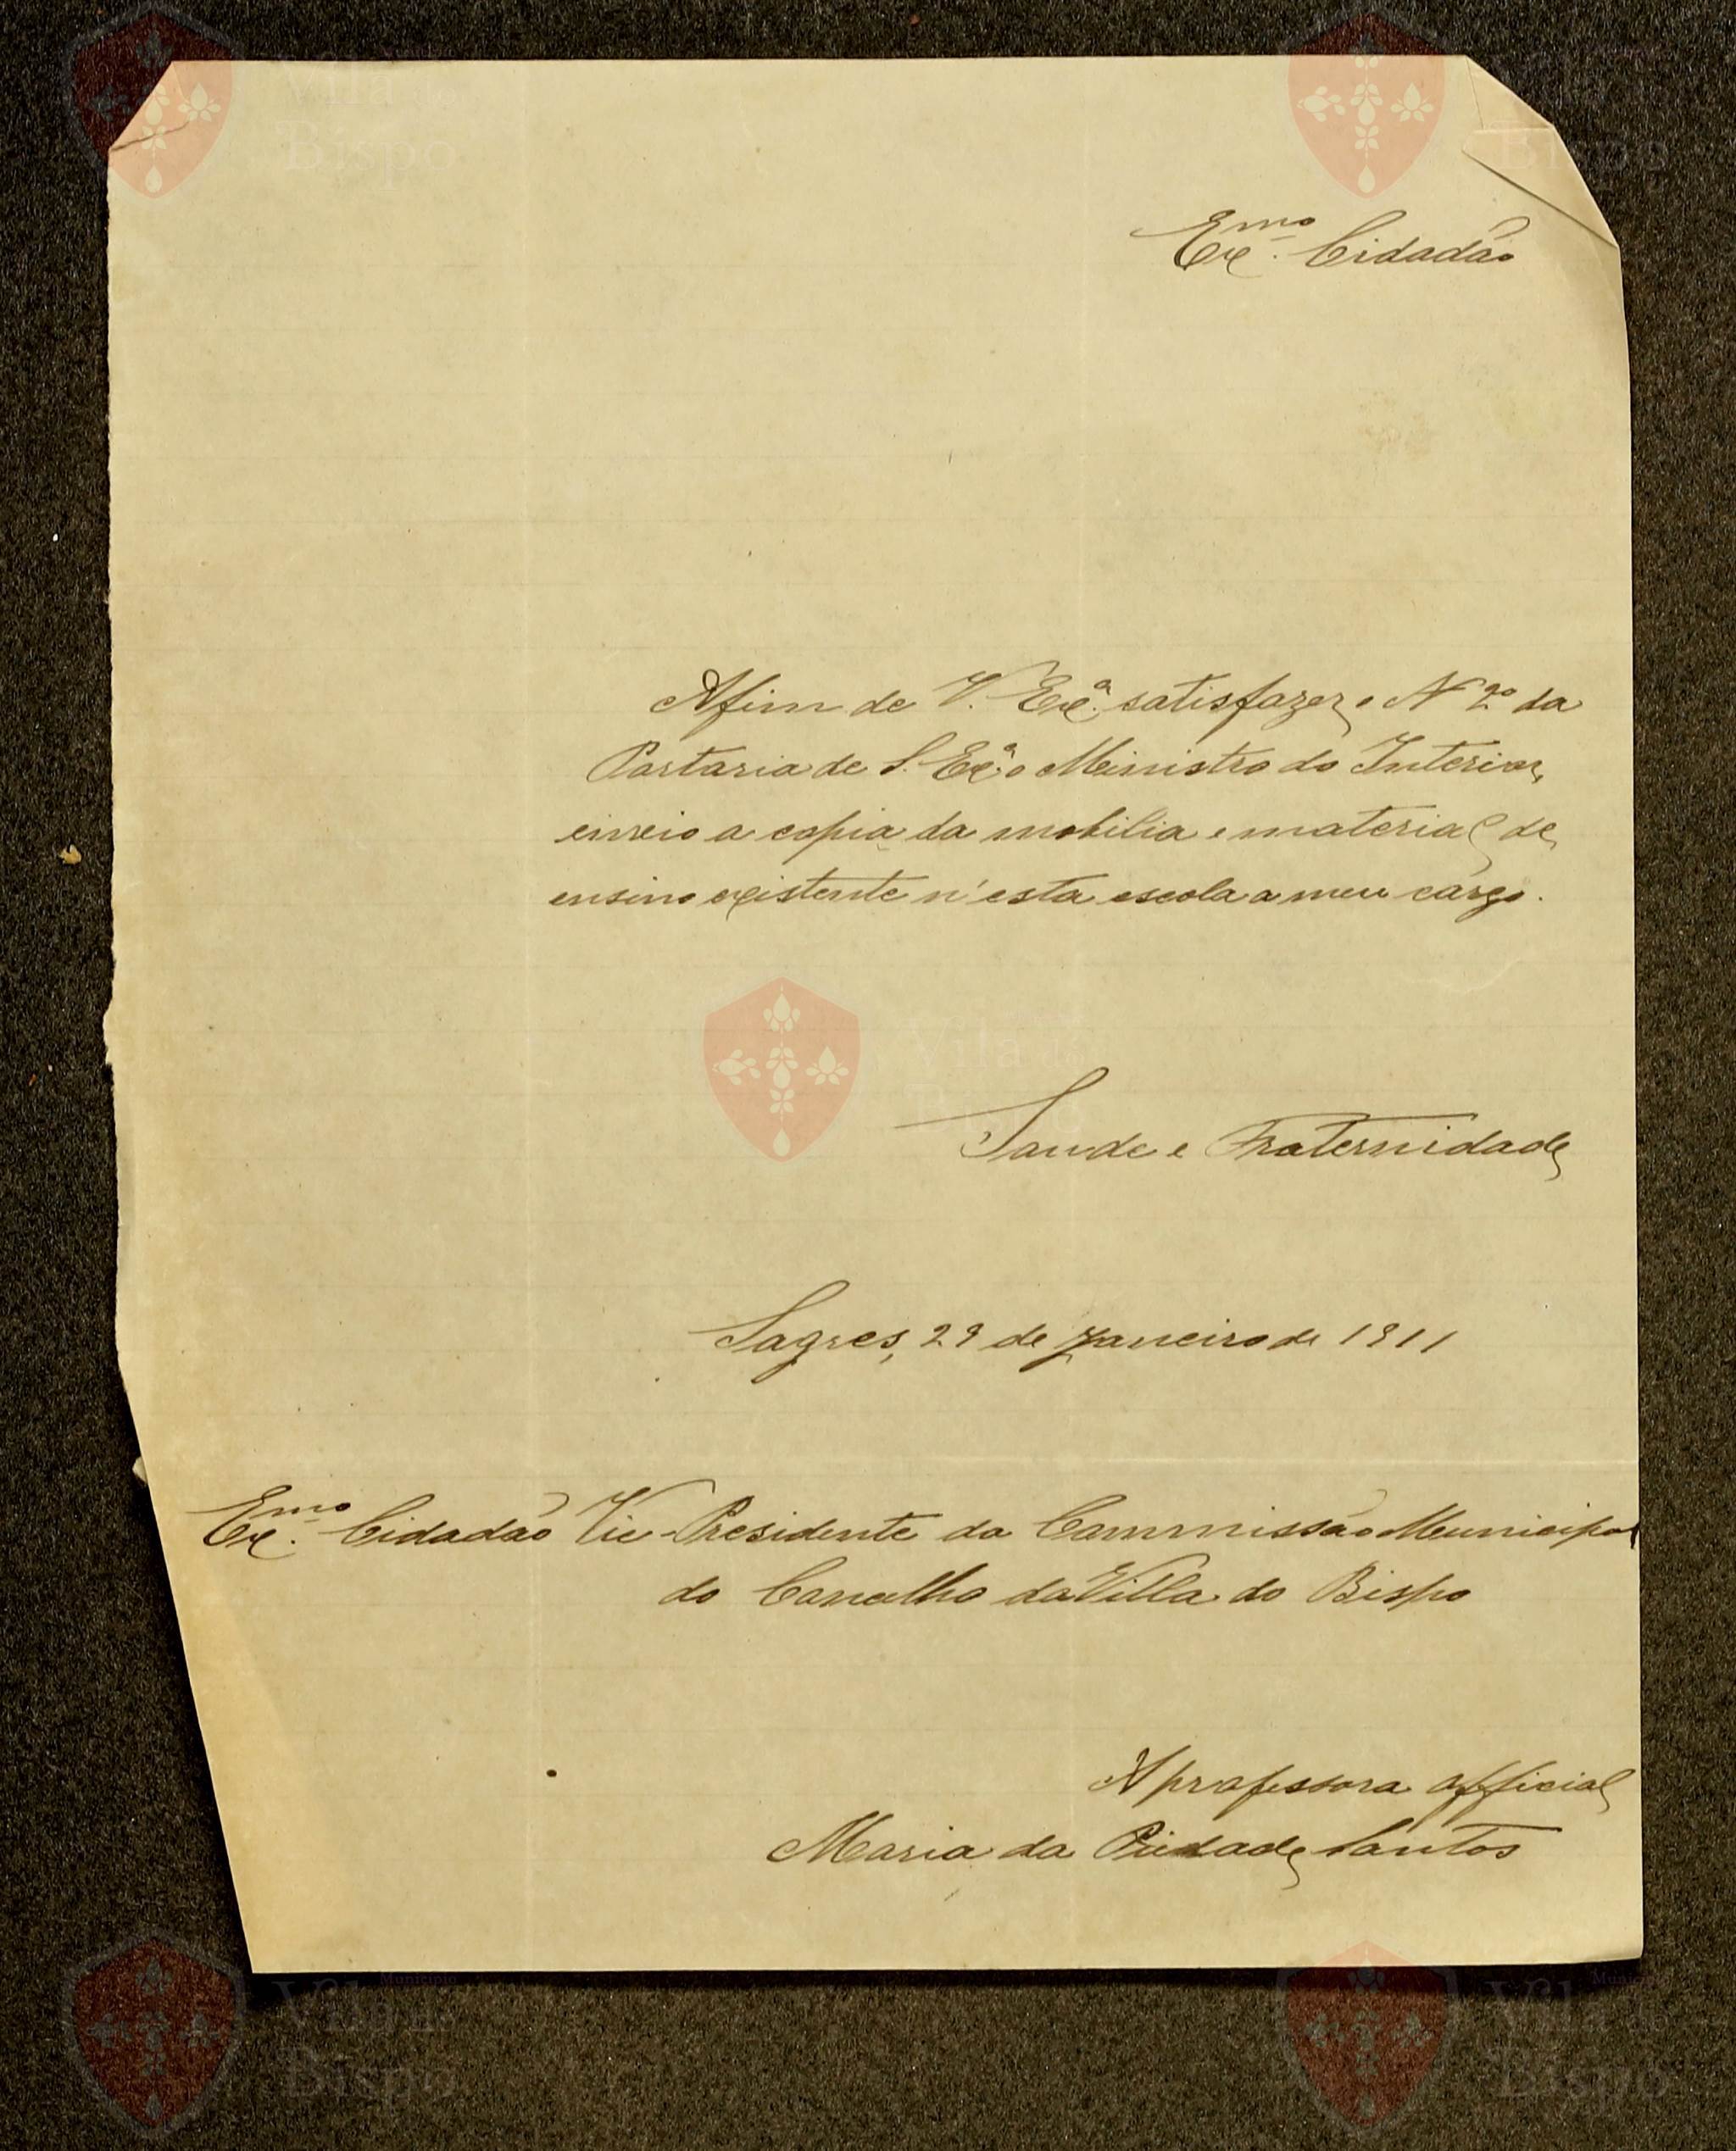 Ex.mo Cidadão
Afim de V. Ex.ª satisfazer o Nº 2º da
Portaria de S. Ex.ª o Ministro do Interior,
envio a copia da mobilia e material de
ensino existente n'esta escola a meu cargo.
Saude e Fraternidade
Sagres, 29 de Janeiro de 1911
Ex.mo Cidadão Vice-Presidente da Commissão Municipal
do Concelho da Villa do Bispo
A professora official
Maria da Piedade Santos
Vila do
Bispo
Município
Vila do
Bispo
Município
Vila do
Bispo